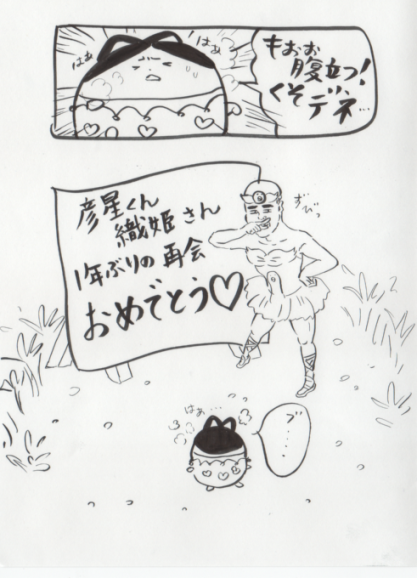 もおお
腹立つ!
くそデネ…
はぁ
はぁ
彦星くん
織姫さん
1年ぶりの再会
おめでとう♡
はぁ…
ブ……